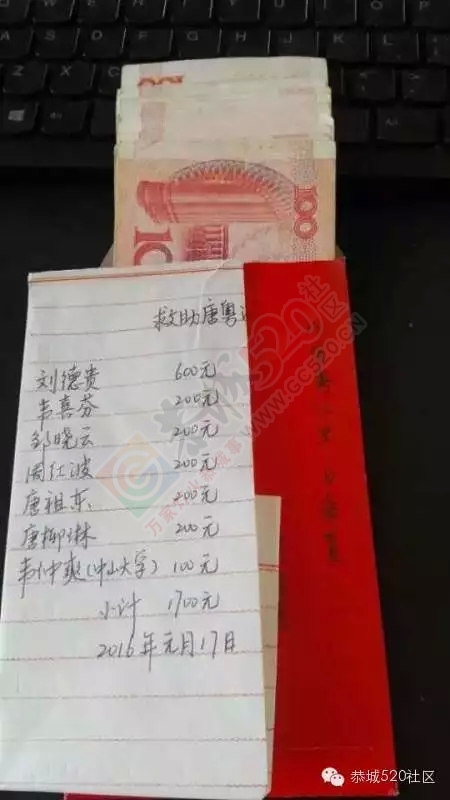 100
100
10
救助唐粤
刘德贵 600元
韦喜芬 200元
邹晓云 200元
周红波 200元
唐祖东 200元
唐柳琳 200元
韦仲爽(中山大学) 100元
小计 1700元
2016年元月17日
恭城520社区
WWW.GC520.CN
恭城520社区